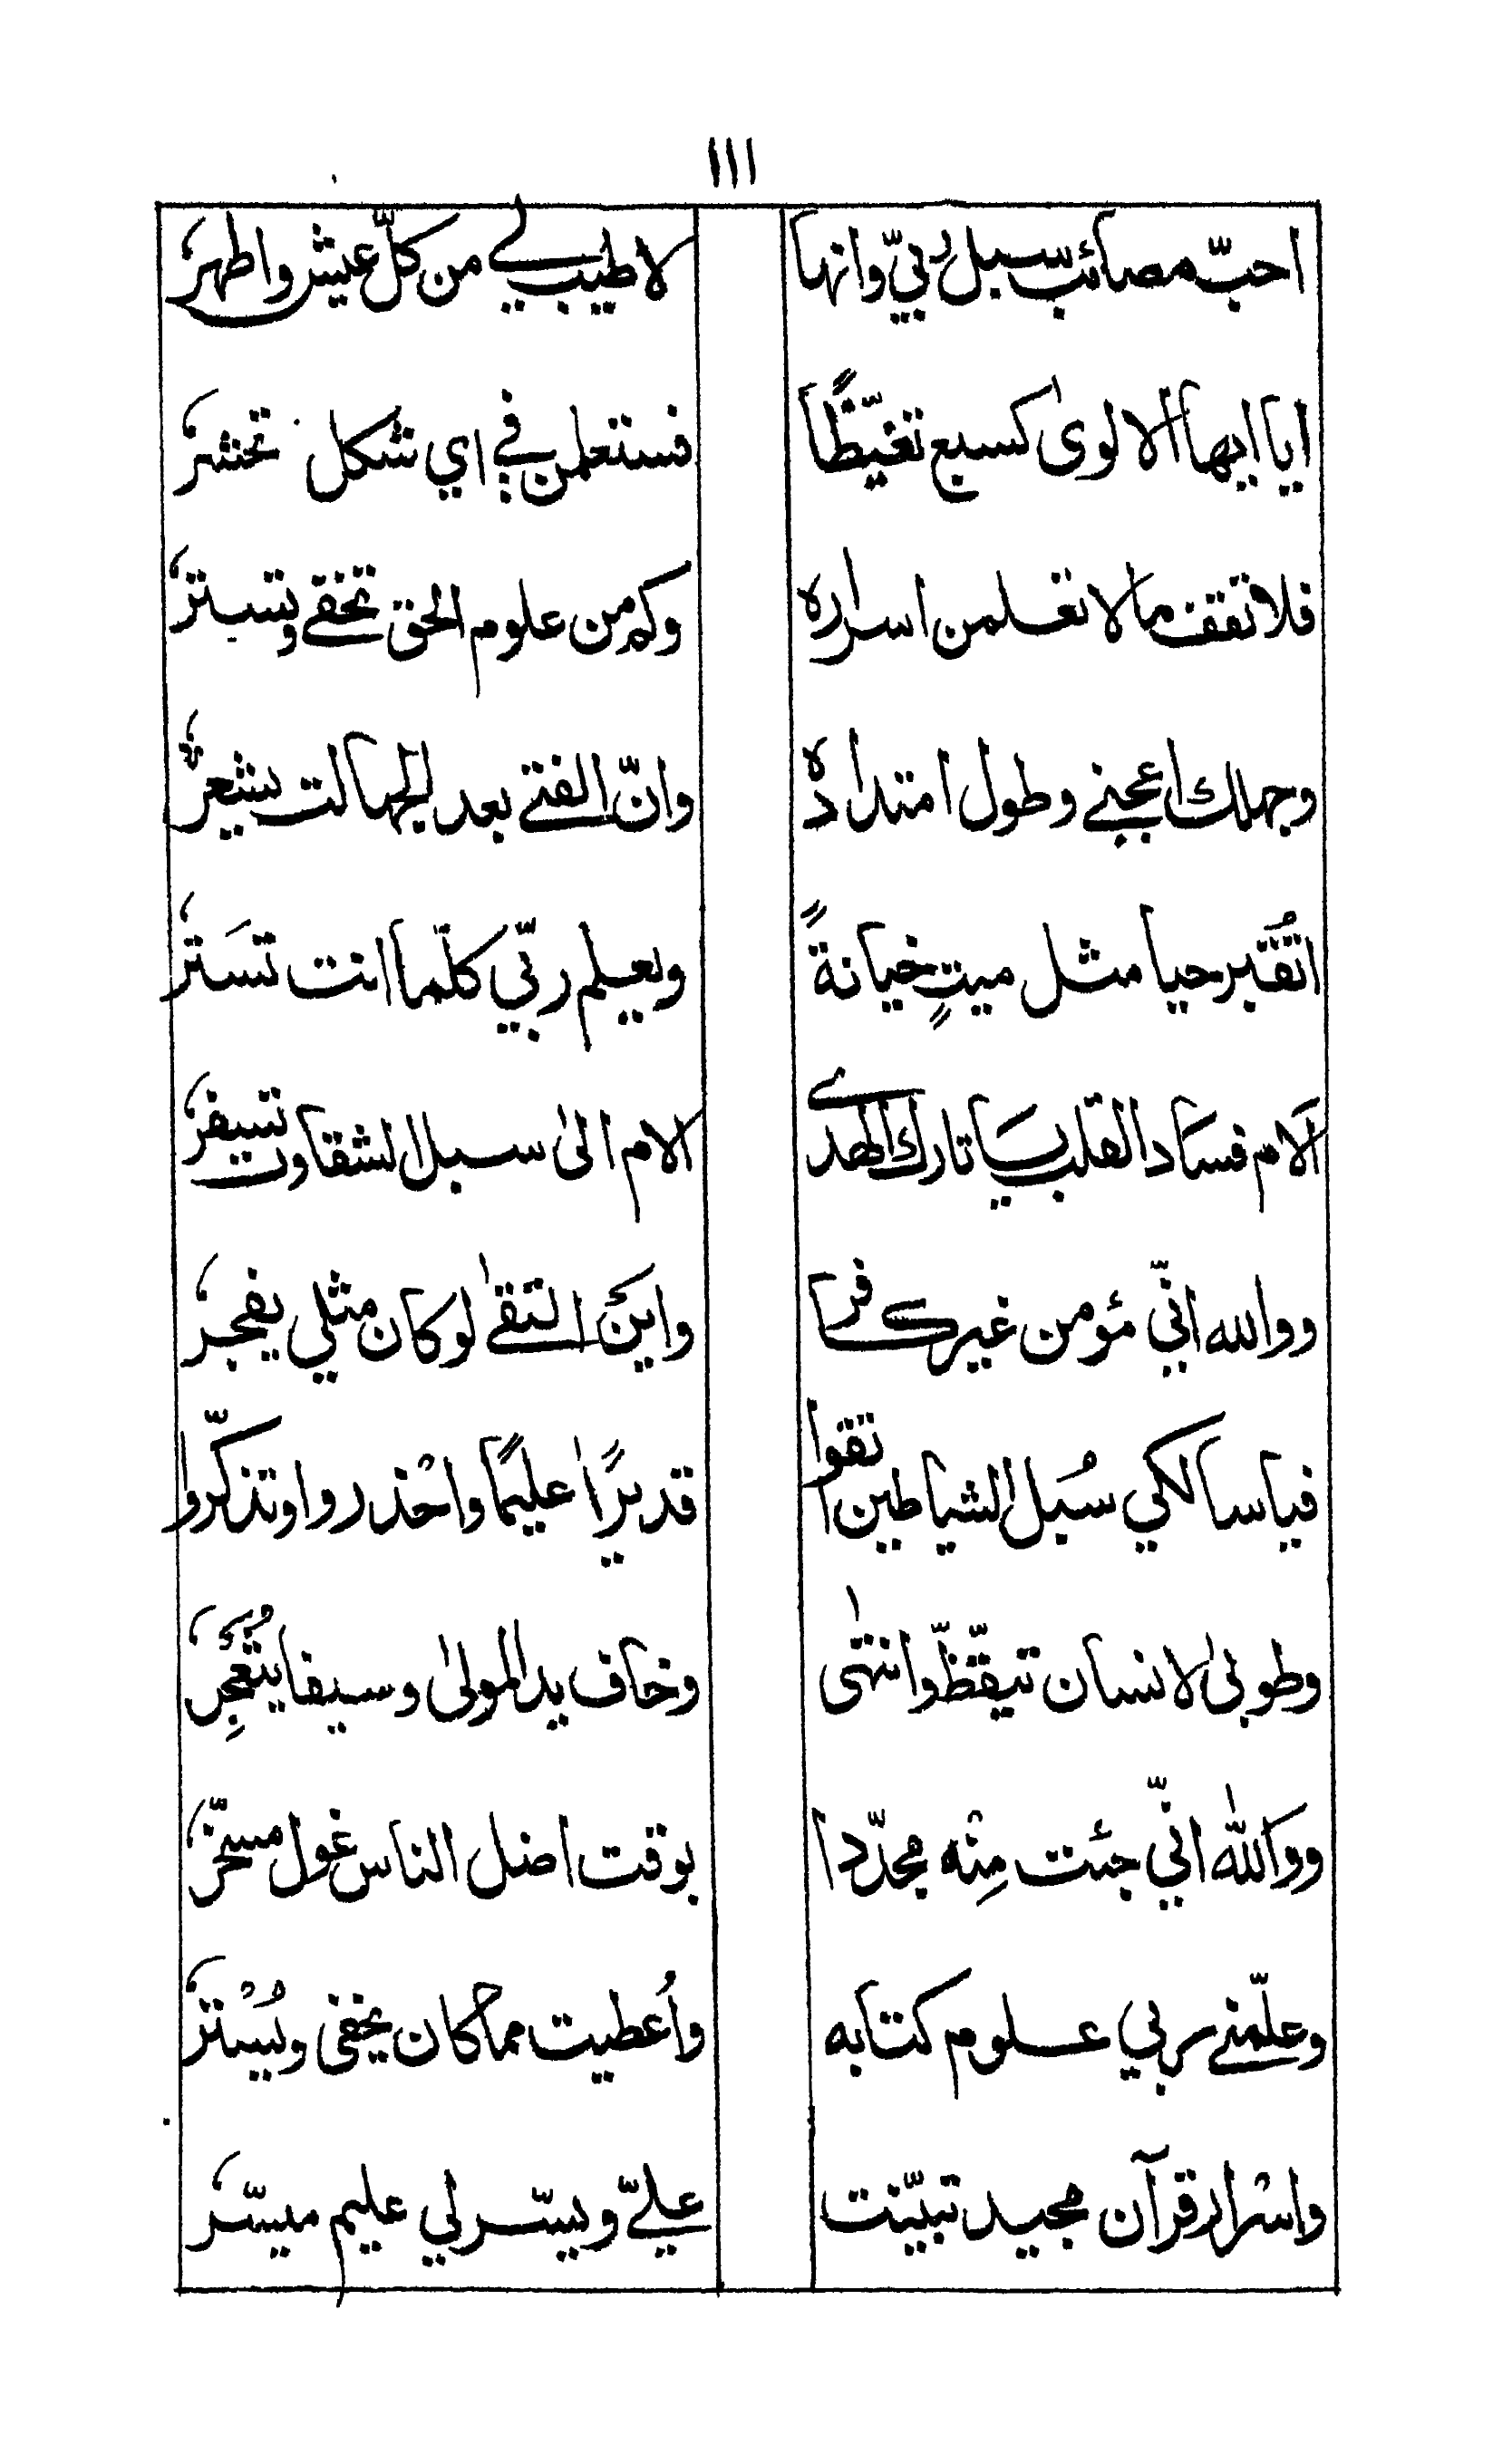 ١١١
احبّ مصائب سبل ربّي وانها لاطيب لي من كلّ عيش واطهر
ايا ايها الالوى كسبع تغيّظًا فستعلمن في اي شكل تحشر
فلا تقف ما لا تعلمن اسراره وكم من علوم الحق تخفى وتستر
وجهلك اعجبني وطول امتداده وانّ الفتى بعد الجهالت يشعر
اتُقبر حيا مثل ميتٍ خيانةً ويعلم ربّي كلّما انت تسَتر
الام فسَاد القلب يَا تارك الهدى الام الى سبل الشقاوت تسفر
ووالله انّي مؤمن غير كافر واين التقى لو كان مثلي يفجر
فيا سالكي سُبل الشياطين اتقوا قديرًا عليمًا واحْذروا وتذكّروا
وطوبى لانسان تيقّظّ وانتهى وخاف يد المولى وسيفا يثعجِر
وواللّه انّي جئت مِنْه مجدّدا بوقت اضل الناس غول مسخّر
وعلّمني ربي علوم كتابه واُعطيت مما كان يخفى ويُسْتر
واسْرار قرآن مجيد تبيّنت عليّ ويسّر لي عليم ميسّر